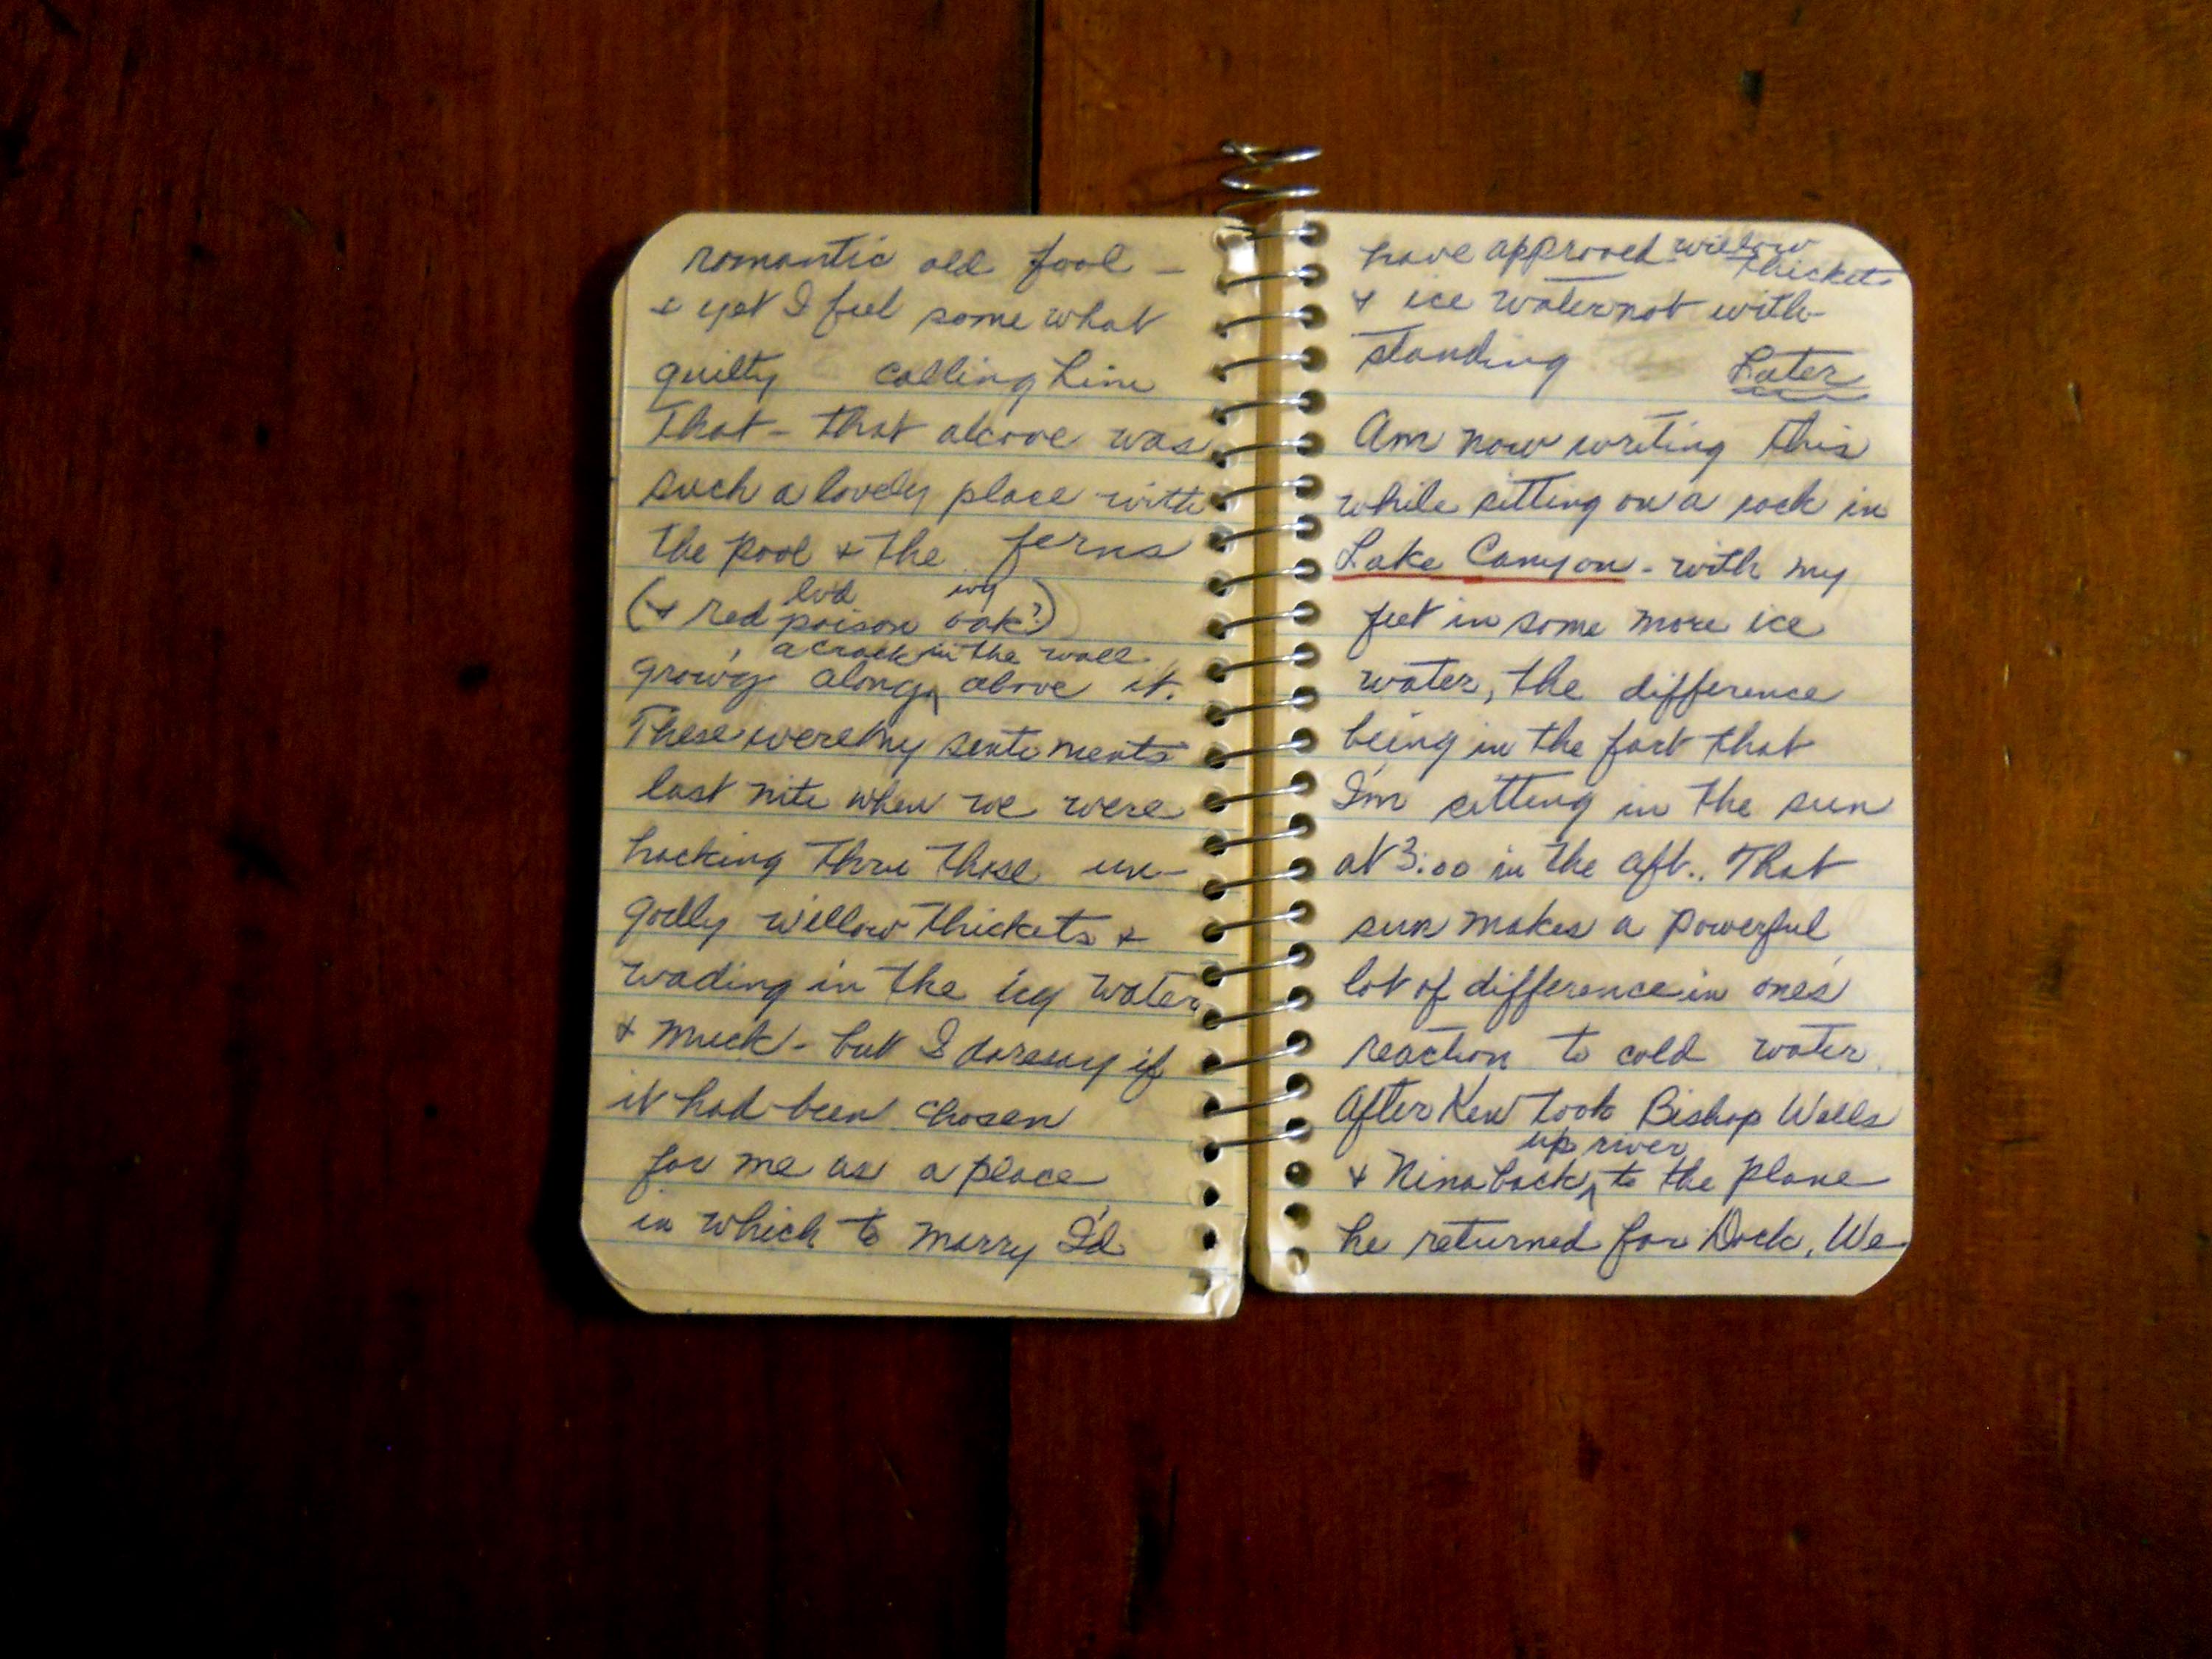 romantic old fool -
& yet I feel some what
guilty calling him
that - that alcove was
such a lovely place with
the pool & the ferns
lvd ivy
(& red poison oak?)
a crack in the wall
grow'g along above it.
These were my sentiments
last nite when we were
hacking thru those un-
godly willow thickets &
wading in the icy water
& muck - but I daresay if
it had been chosen
for me as a place
in which to marry I'd
have approved willow
thickets
& ice water not with-
standing
Later
Am now writing this
while sitting on a rock in
Lake Canyon - with my
feet in some more ice
water, the difference
being in the fact that
I'm sitting in the sun
at 3:00 in the aft.. That
sun makes a powerful
lot of difference in one's
reaction to cold water.
After Ken took Bishop Wells
up river
& Nina back to the plane
he returned for Dock. We